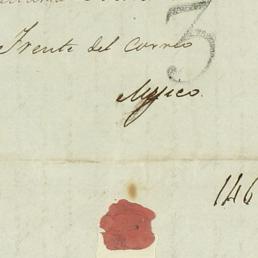 3
Frente del Correo
Mejico.
146